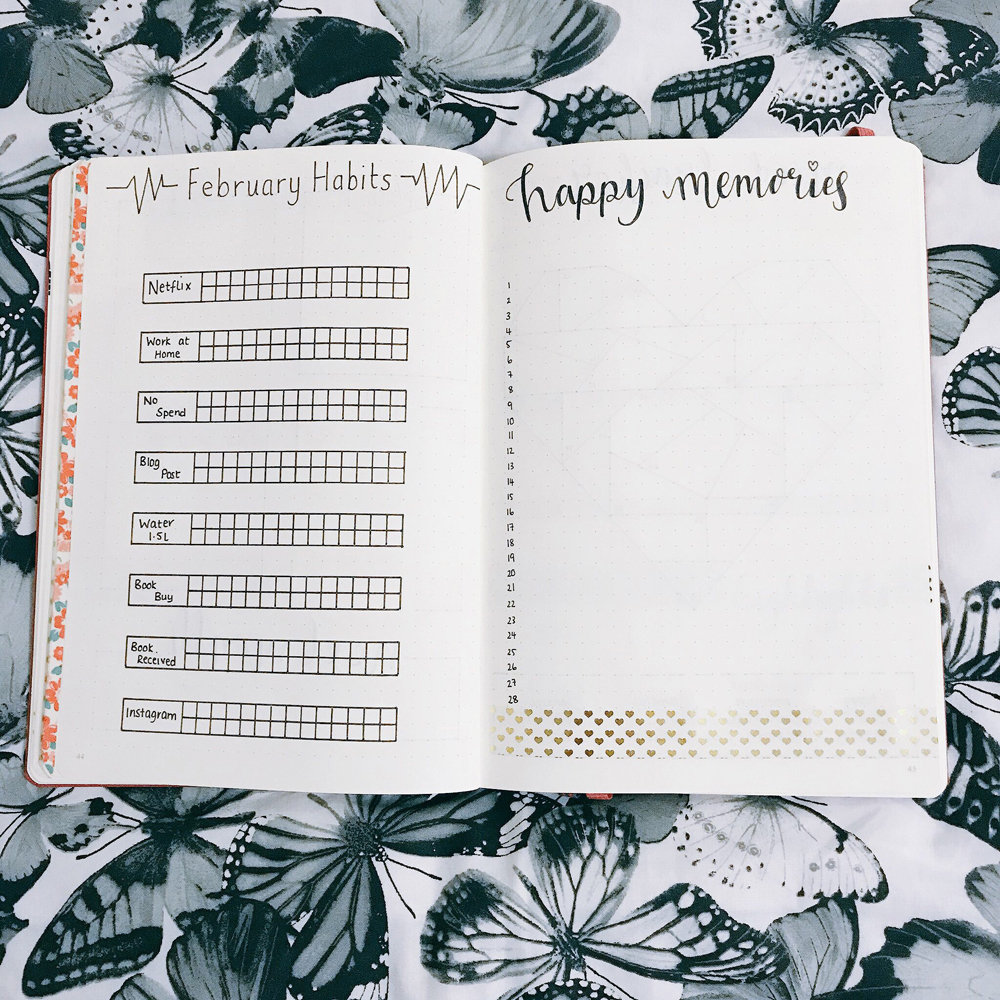 February Habits
Netflix
Work at
Home
No
Spend
Blog
Post
Water
1.5L
Book
Buy
Book.
Received
Instagram
44
happy memories
1
2
3
4
5
6
7
8
9
10
11
12
13
14
15
16
17
18
19
20
21
22
23
24
25
26
27
28